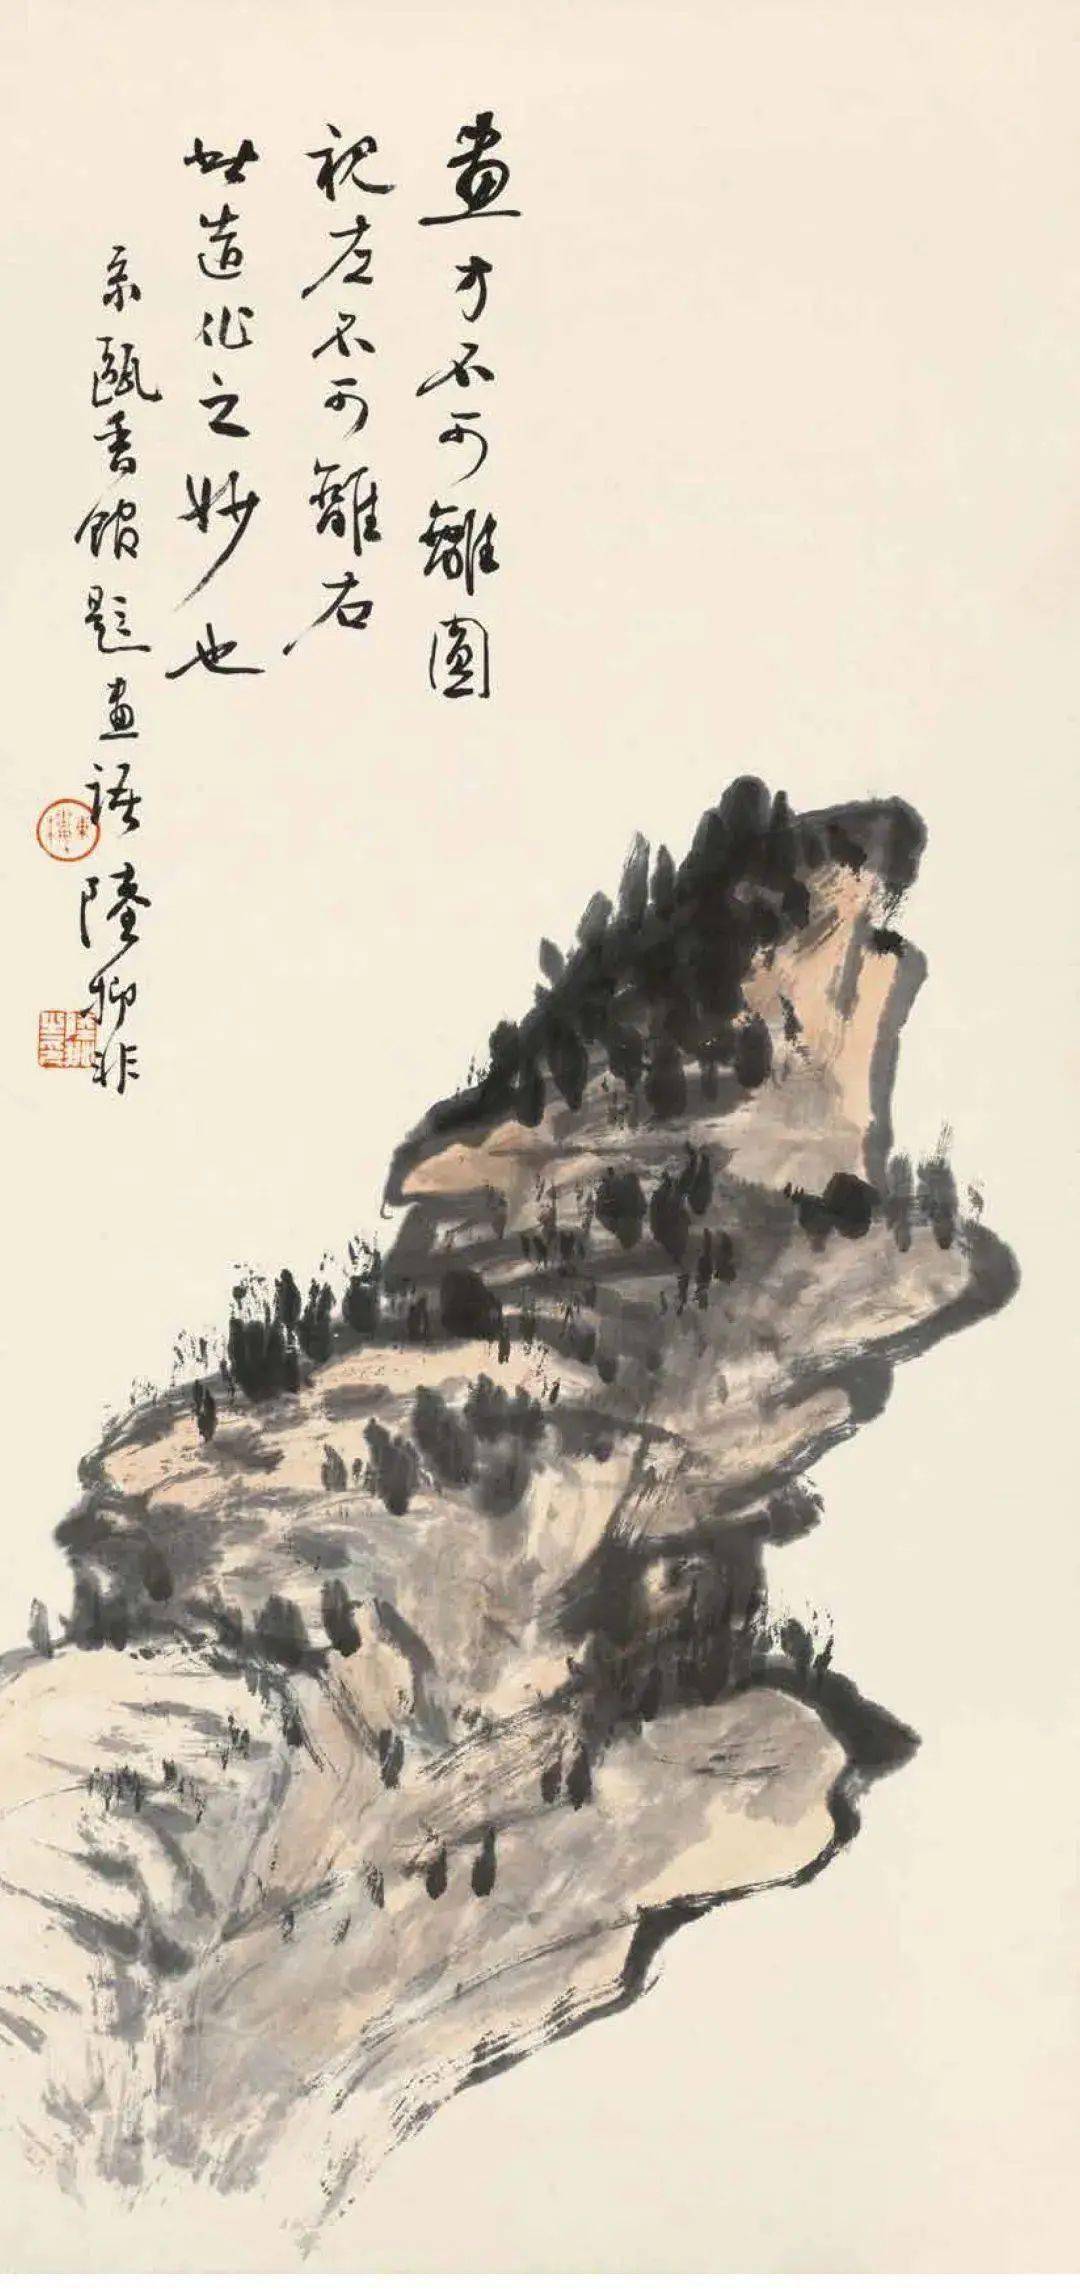 畫方不可離圓
視左不可離右
此造化之妙也
系甌香館題畫語 陸抑非